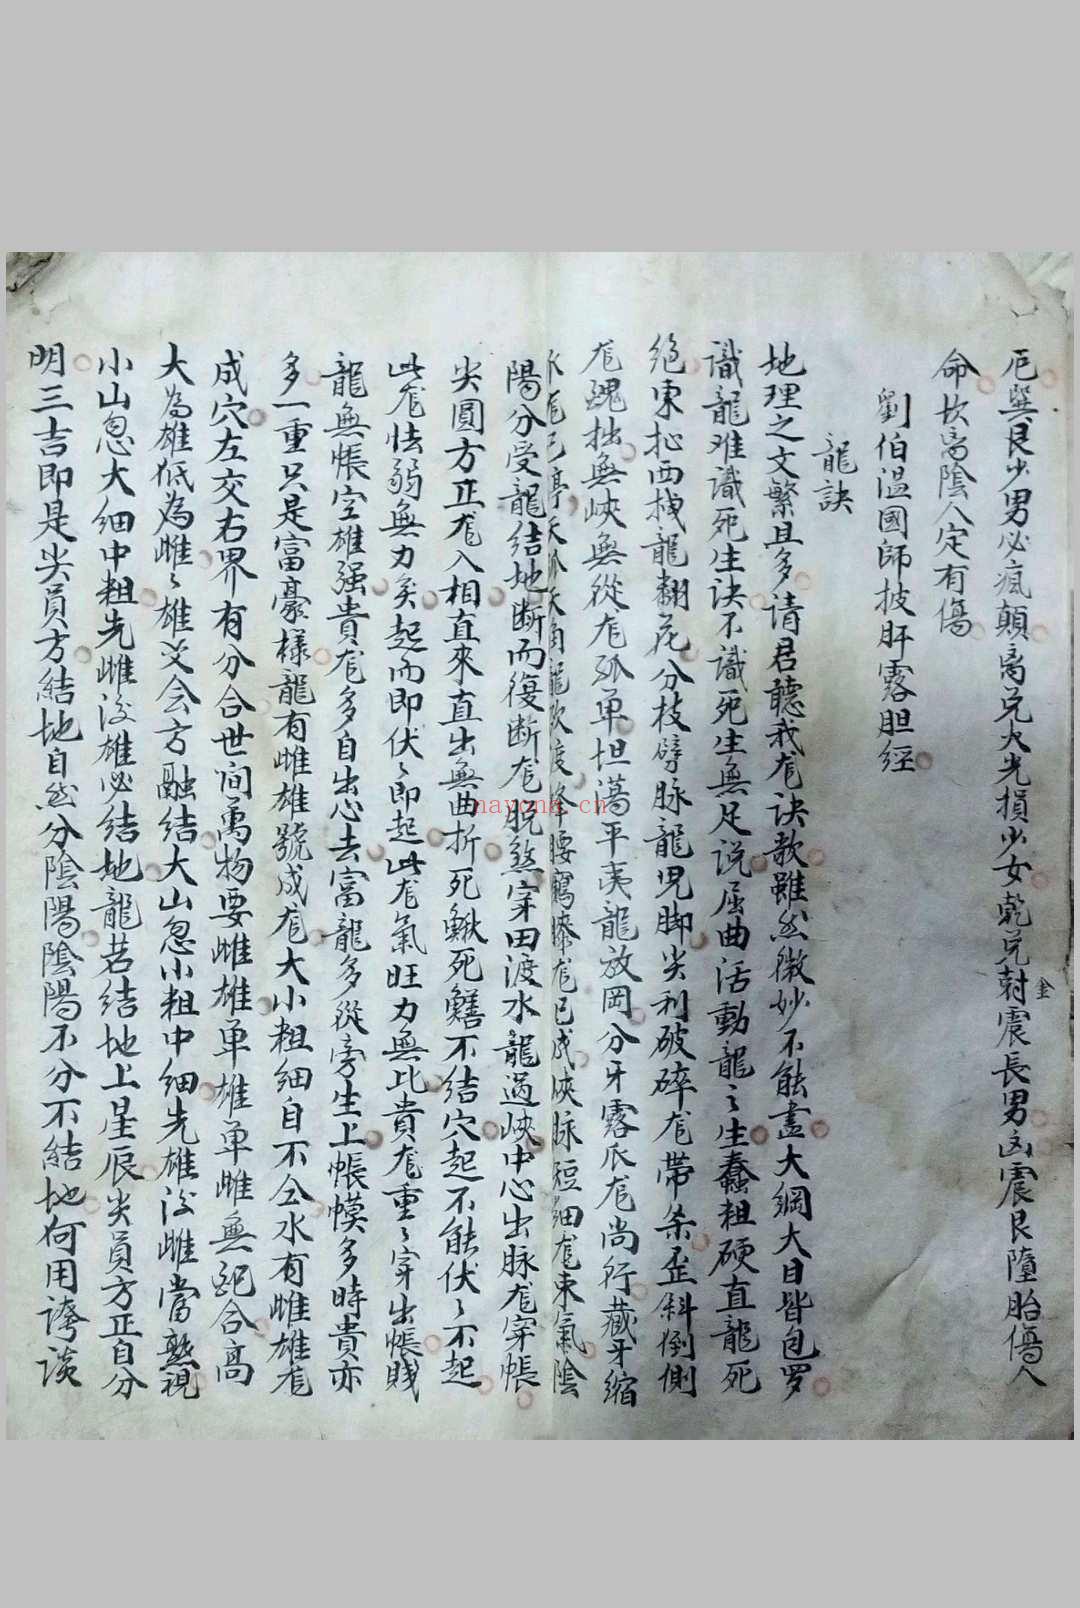 厄巽艮少男必瘋顛离兌火光損少女乾兌尅震長男凶震艮墮胎傷人
金
命坎离陰人定有傷
劉伯溫國師披肝露胆經
龍訣
地理之文繁且多请君聽我尨诀歌雖然微妙不能盡大綱大目皆包罗
識龍难識死生诀不識死生無足说屈曲活動龍〻生蠢粗硬直龍死
絕東扯西拽龍翻花分枝劈脉龍鬼脚尖利破碎尨帶杀歪斜倒側
尨醜拙無峽無從尨孤单坦蕩平夷龍放岡分牙露爪尨尚行藏牙縮
爪尨已亭
峯腰鶴膝尨已成峽脉短細尨束氣陰
陽分受龍結地断而復断尨脱煞穿田渡水龍過峽中心出脉尨穿帳
尖圓方正尨入相直來直出無曲折死鰍死鱔不结穴起不能伏〻不起
此尨怯弱無力矣起而即伏〻即起此尨氣旺力無比貴尨重〻穿出帳賤
龍無帳空雄强貴尨多自出心去富龍多從旁生上帳幙多時貴亦
多一重只是富豪樣龍有雌雄號成尨大小粗細自不仝水有雌雄尨
成穴左交右界有分合世间萬物要雌雄单雄单雌無配合高
大為雄低為雌〻雄交会方融結大山忽小粗中細先雄後雌當熟視
小山忽大细中粗先雌後雄必结地龍若结地上星辰尖員方正自分
明三吉即是尖員方結地自然分陰陽陰陽不分不結地何用誇谈
nayona.cn